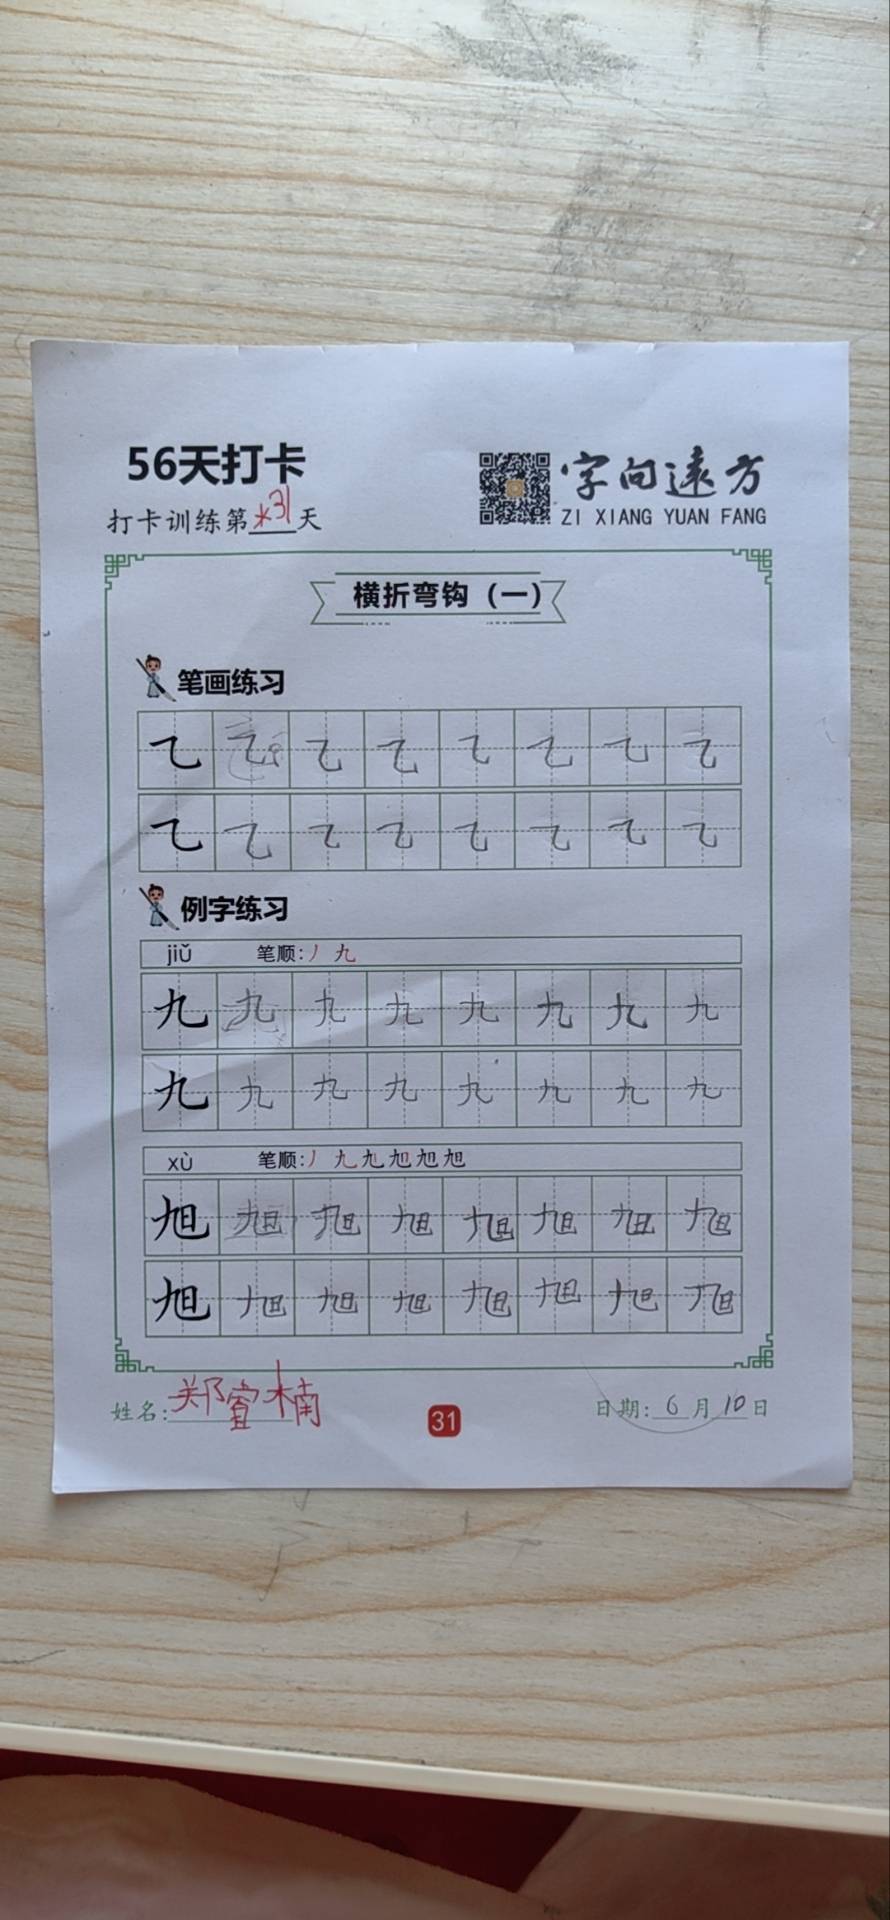 56天打卡
字向遠方
打卡训练第31天
ZI XIANG YUAN FANG
横折弯钩（一）
笔画练习
乙 乙 乙 乙 乙 乙 乙 乙
乙 乙 乙 乙 乙 乙 乙 乙
例字练习
jiǔ 笔顺：丿 九
九 九 九 九 九 九 九 九
九 九 九 九 九 九 九 九
xù 笔顺：丿 九 九 旭 旭 旭
旭 旭 旭 旭 旭 旭 旭 旭
旭 旭 旭 旭 旭 旭 旭 旭
姓名：郑宣楠
31
日期：6月10日